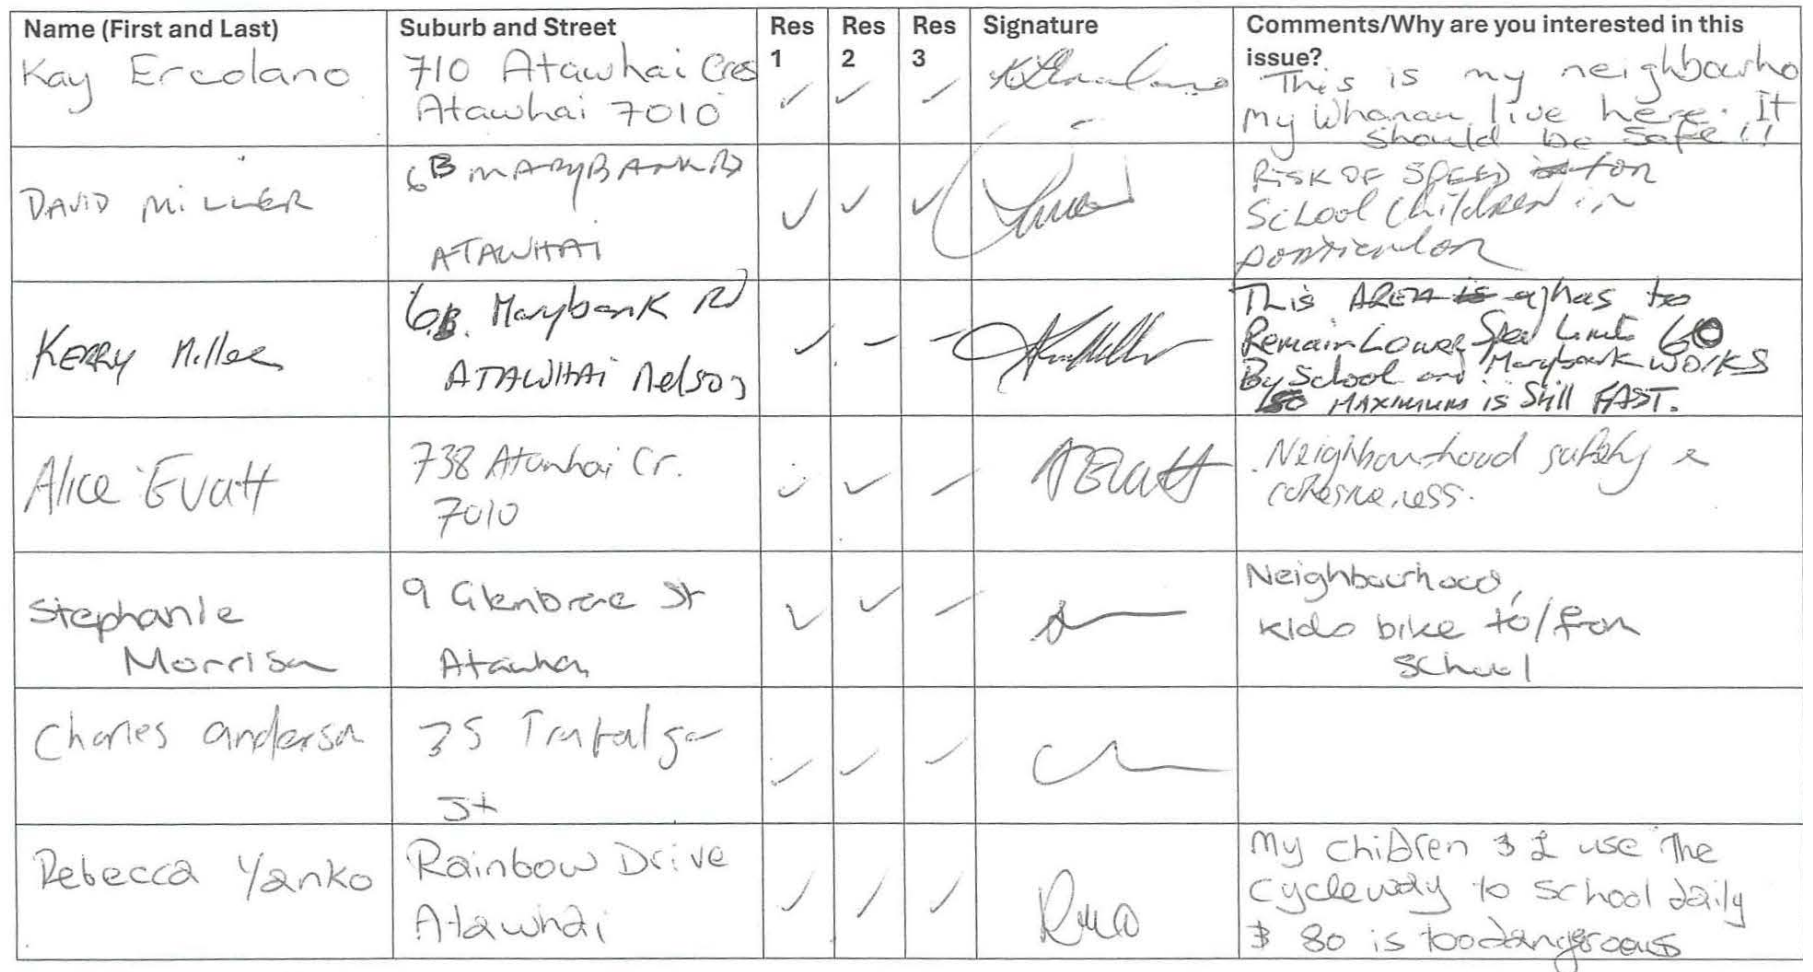 Name (First and Last) Suburb and Street Res 1 Res 2 Res 3 Signature Comments/Why are you interested in this issue?
Kay Ercolano 710 Atawhai Cres
Atawhai 7010
✓ ✓ ✓
This is my neighbourho
my Whanau live here. It
should be safe!!
DAVID MILLER 6B MARYBANK RD
ATAWHAI
✓ ✓ ✓
RISK OF SPEED for
School Children in
particular
KERRY Miller 6B. Marybank Rd
ATAWHAI Nelson
✓ ✓ ✓
This AREA has to
Remain Lower Speed Limit 60
By School and Marybank WORKS
MAXIMUM is Still FAST.
Alice Evatt 738 Atawhai Cr.
7010
✓ ✓ ✓
AEvatt
Neighbourhood safety &
cohesiveness.
Stephanie
Morrison
9 Glenbrae St
Atawhai
✓ ✓ ✓
Neighbourhood,
kids bike to/from
school
Charles anderson 35 Trafalgar
St
✓ ✓ ✓
Rebecca Yanko Rainbow Drive
Atawhai
✓ ✓ ✓
My children & I use the
cycleway to school daily
& 80 is too dangerous